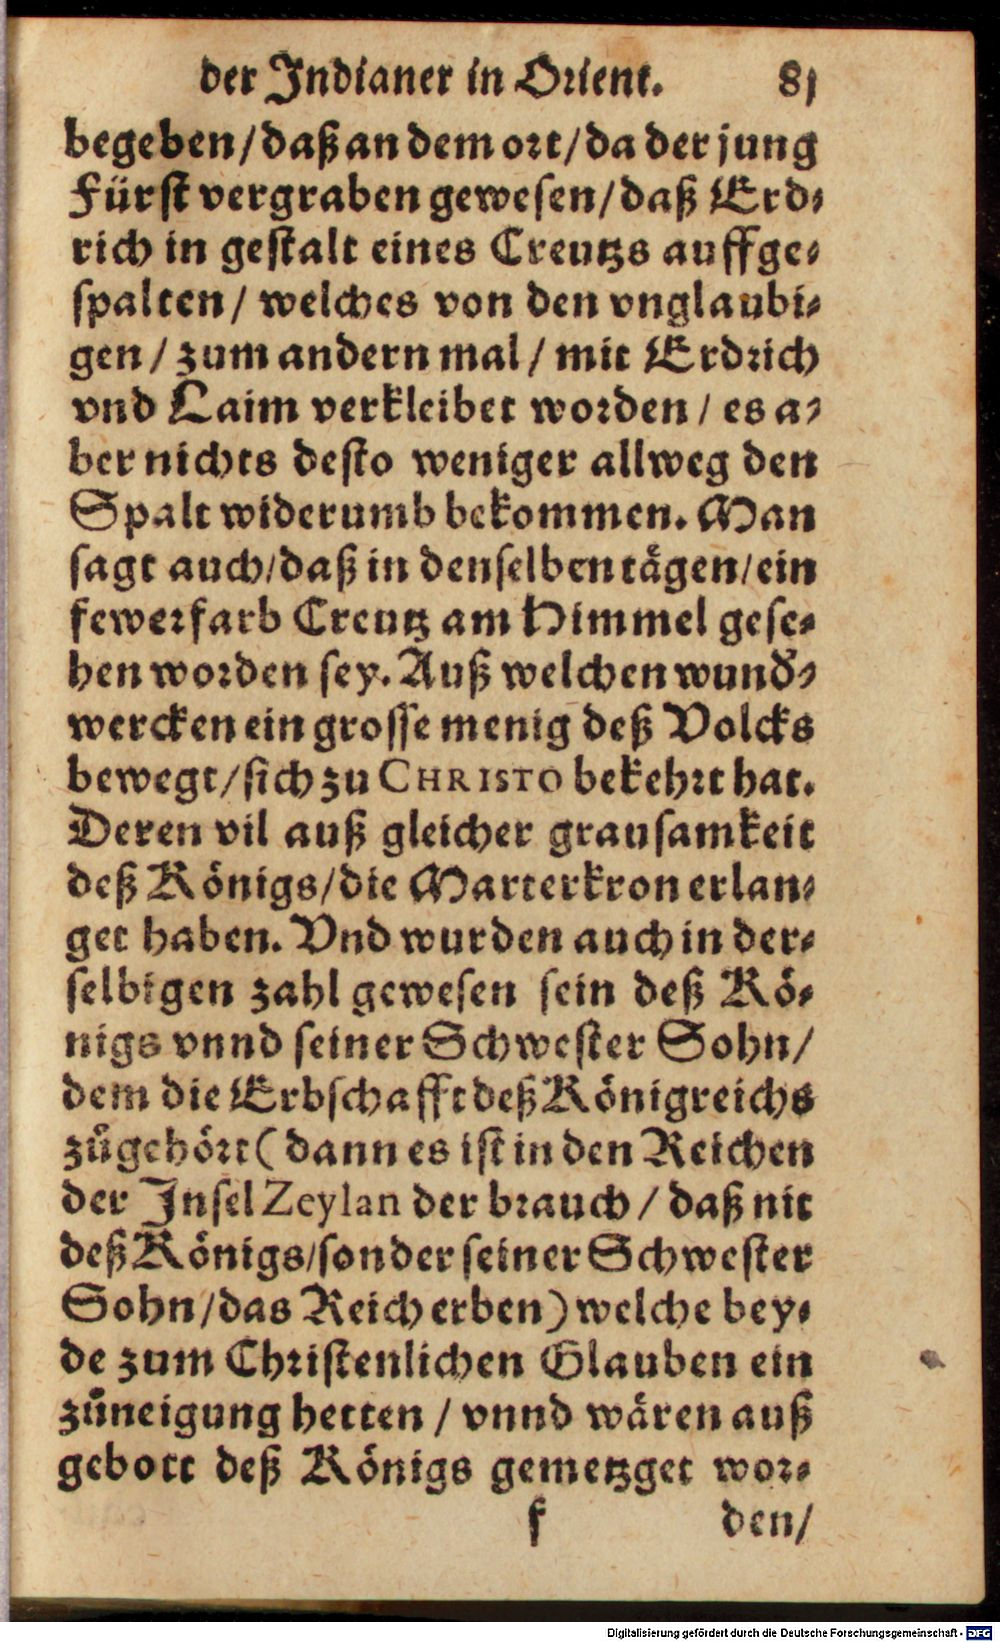 der Indianer in Orient. 81
begeben/daß an dem ort/da der jung
Fürst vergraben gewesen/daß Erd-
rich in gestalt eines Creutzs auffge-
spalten/ welches von den vnglaubi-
gen/ zum andern mal/ mit Erdrich
vnd Laim verkleibet worden/ es a-
ber nichts desto weniger allweg den
Spalt widerumb bekommen. Man
sagt auch/daß in denselben tägen/ein
fewerfarb Creutz am Himmel gese-
hen worden sey. Auß welchen wund̾-
wercken ein grosse menig deß Volcks
bewegt/sich zu CHRISTO bekehrt hat.
Deren vil auß gleicher grausamkeit
deß Königs/die Marterkron erlan-
get haben. Vnd wurden auch in der-
selbigen zahl gewesen sein deß Kö-
nigs vnnd seiner Schwester Sohn/
dem die Erbschafft deß Königreichs
zůgehört (dann es ist in den Reichen
der Insel Zeylan der brauch/ daß nit
deß Königs/sonder seiner Schwester
Sohn/das Reich erben) welche bey-
de zum Christenlichen Glauben ein
zůneigung hetten/ vnnd wären auß
gebott deß Königs gemetzget wor-
f den/
Digitalisierung gefördert durch die Deutsche Forschungsgemeinschaft - DFG